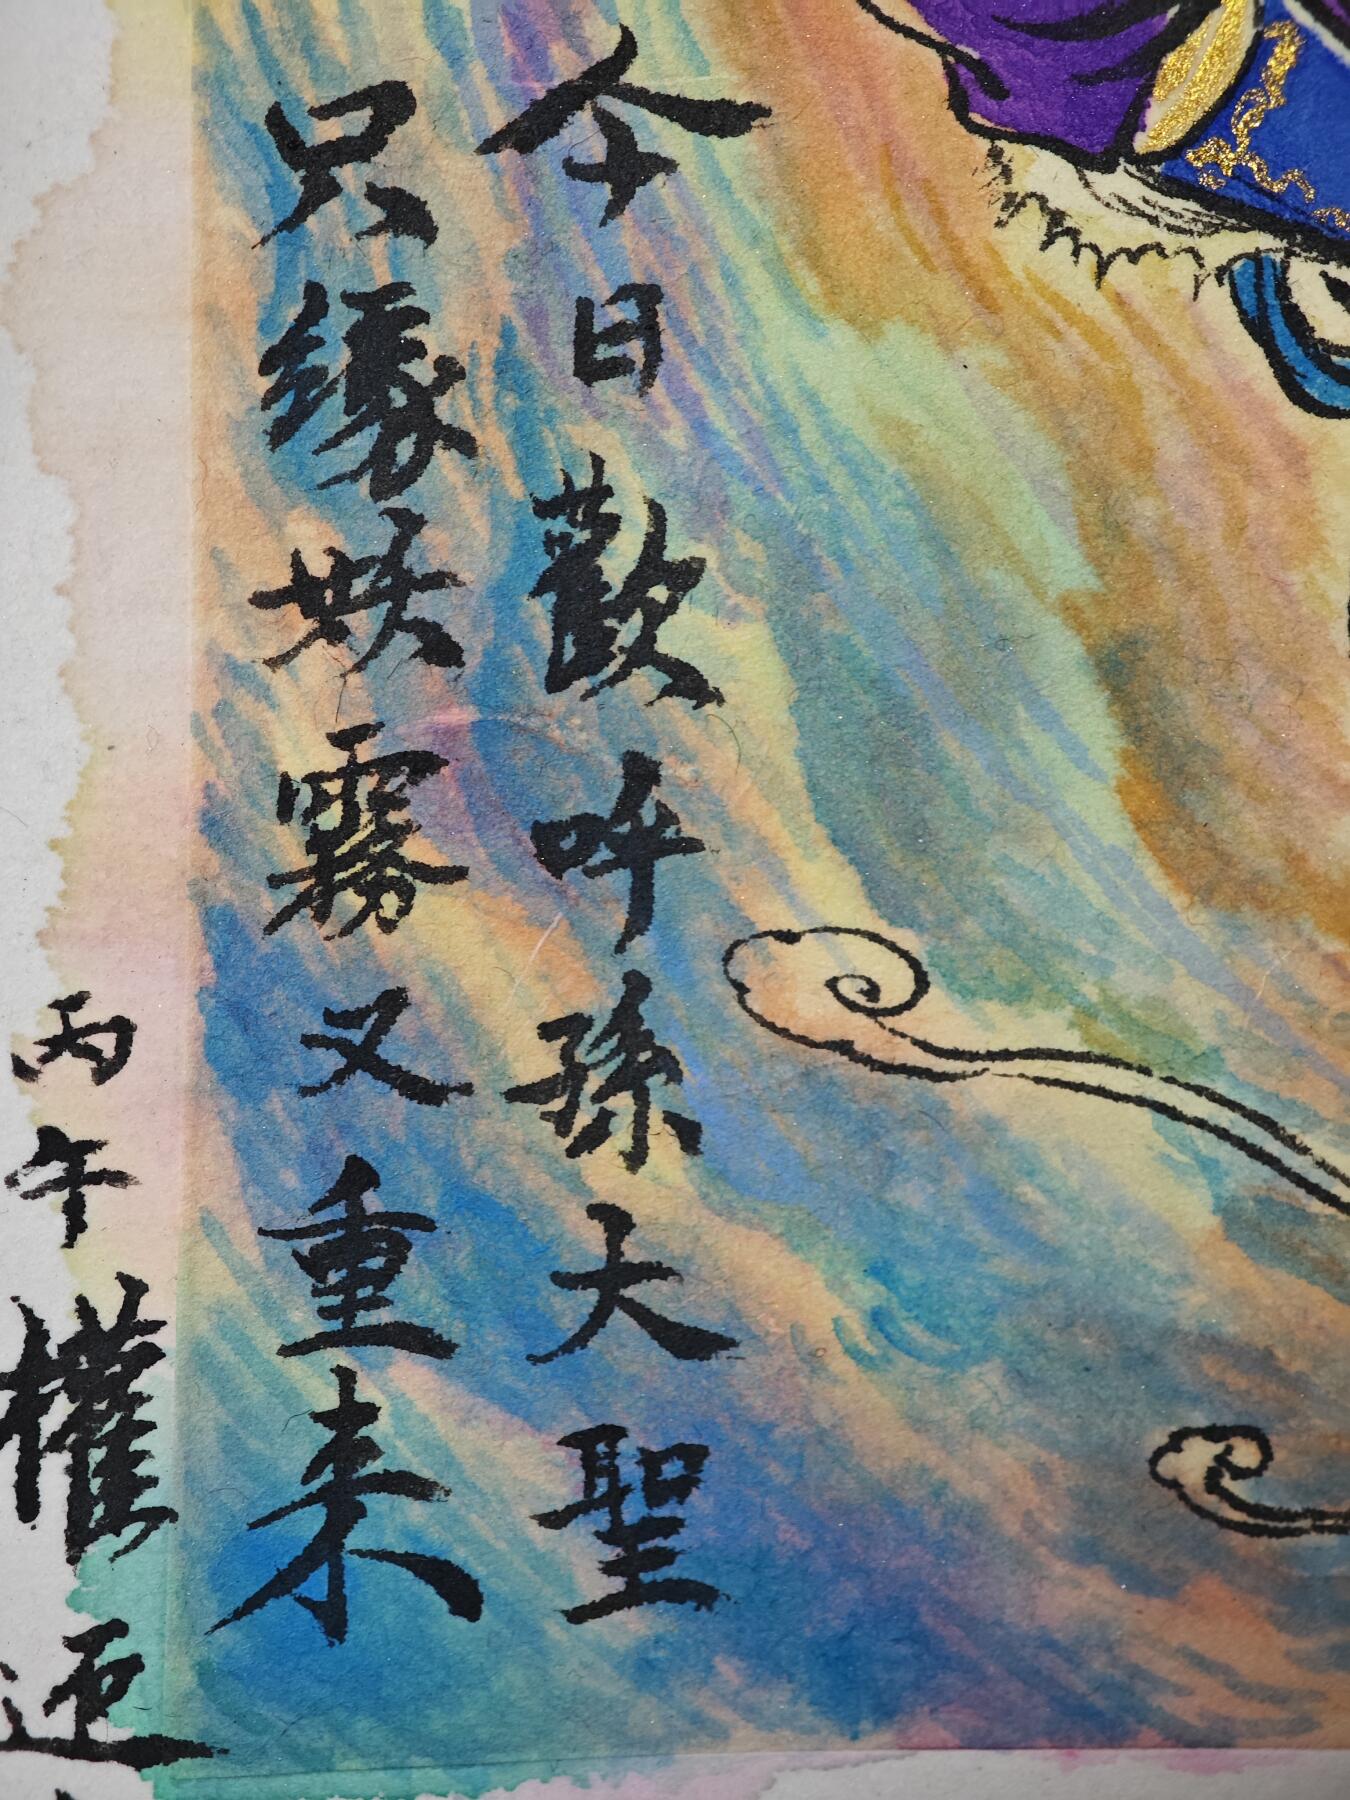 今日歡呼孫大聖
只緣妖霧又重来
丙午權迎